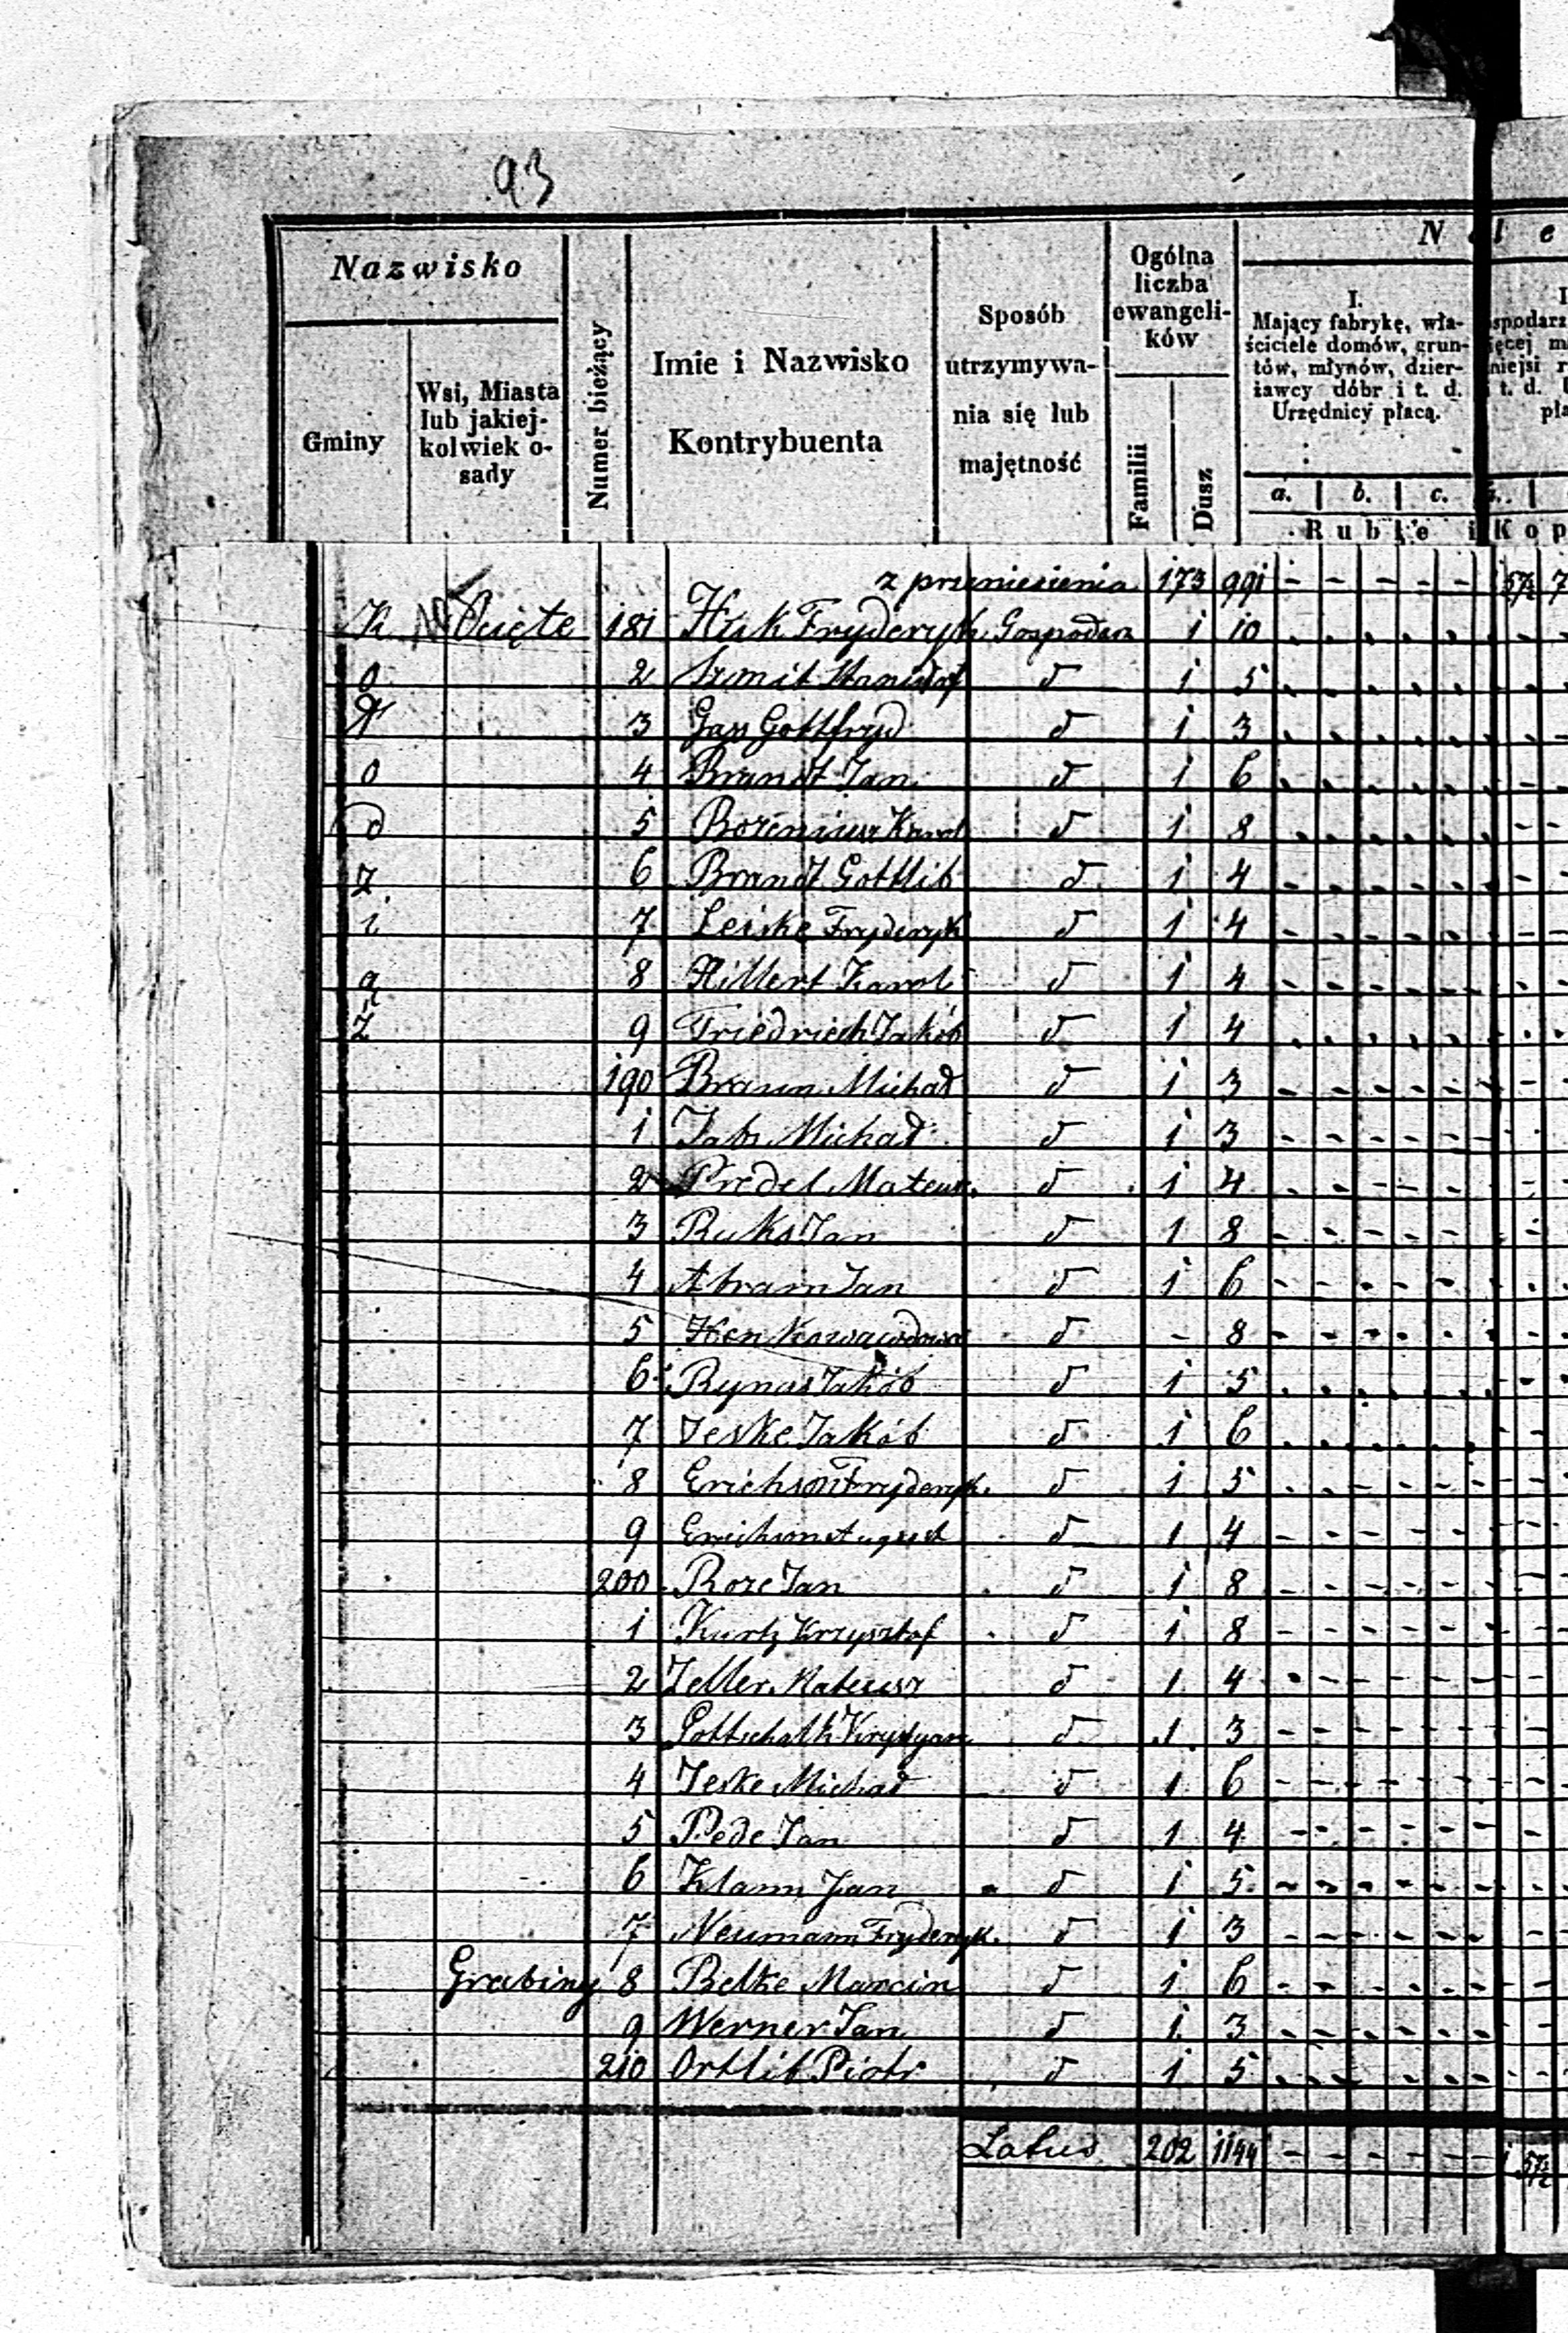 93
Nazwisko
Gminy
Wsi, Miasta lub jakiej-kolwiek o-sady
Numer bieżący
Imie i Nazwisko Kontrybuenta
Sposób utrzymywa-nia się lub majętność
Ogólna liczba ewangeli-ków
Familii
Dusz
N l e
I. Mający fabrykę, wła-ściciele domów, grun-tów, młynów, dzier-żawcy dóbr i t. d. Urzędnicy płacą.
a. b. c.
Ruble i Kop
z przeniesienia 173 991 - - - - - 57½ 7
K Święte 181 Huk Fryderyk Gospodarz 1 10
o 2 Szmit d 1 5
3 Gass Gottfryd d 1 3
o 4 Brandt Jan d 1 6
d 5 Karol d 1 8
z 6 Brandt Gottlib d 1 4
i 7 Leiske Fryderyk d 1 4
ą 8 Hillert Karol d 1 4
ż 9 Friedrich Jakób d 1 4
190 Braun Michał d 1 3
1 Jabs Michał d 1 3
2 Predel Mateusz d 1 4
3 Ruks Jan d 1 8
4 Abram Jan d 1 6
5 Hen d - 8
6 Rynas Jakób d 1 5
7 Jeske Jakób d 1 6
8 Erichson Fryderyk d 1 5
9 Erichson August d 1 4
200 Roze Jan d 1 8
1 Kurtz Krzysztof d 1 8
2 Zeller Mateusz d 1 4
3 Gottschalk Krystyan d 1 3
4 Jeske Michał d 1 6
5 Pede Jan d 1 4
6 Klann Jan d 1 5
7 Neumann Fryderyk d 1 3
Grabiny 8 Belke Marcin d 1 6
9 Werner Jan d 1 3
210 Ortlib Piotr d 1 5
Latus 202 1144 - - - - - 1 57½